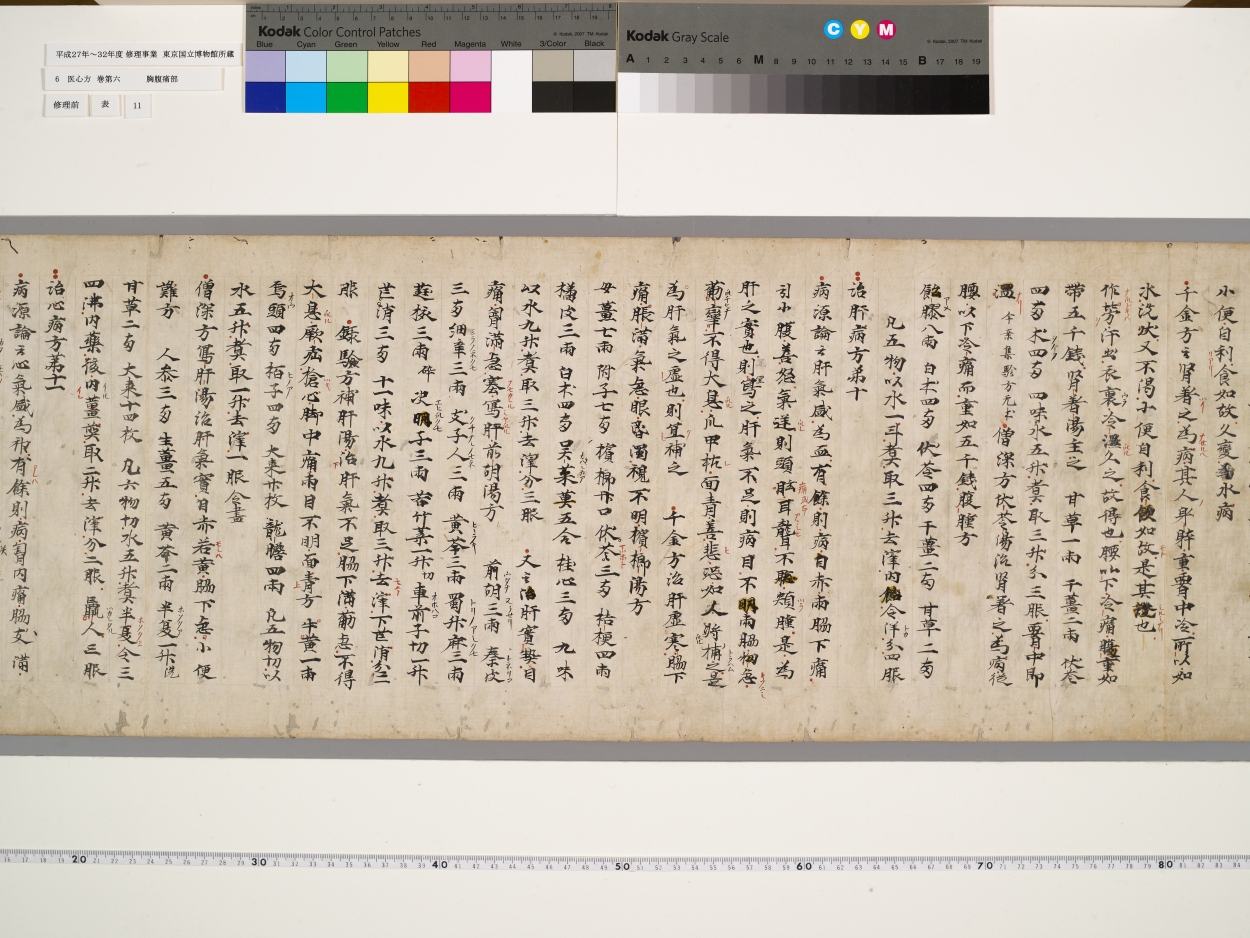 平成27年～32年度 修理事業 東京国立博物館所蔵
6 医心方 巻第六 胸腹痛部
修理前 表 11
Kodak Color Control Patches
Blue Cyan Green Yellow Red Magenta White 3/Color Black
© Kodak, 2007 TM: Kodak
Kodak Gray Scale
C Y M
© Kodak, 2007 TM: Kodak
A 1 2 3 4 5 6 M 8 9 10 11 12 13 14 15 B 17 18 19
小便自利食如故久變為水病
千金方云腎著之為病其人身體重腰中冷所以如
水洗狀又不渴小便自利食飲如故是其證也
作勞汗出衣裏冷濕久之故得也腰以下冷痛腰重如
帶五千錢腎著湯主之 甘草一兩 干薑二兩 伏苓
四兩 朮四兩 四味水五升煮取三升分三服腰中即
温 僧深方伏苓湯治腎著之為病従
腰以下冷痛而重如五千錢腹腫方
飴膠八兩 白朮四兩 伏苓四兩 干薑二兩 甘草二兩
凡五物以水一斗煮取三升去滓内飴令洋分四服
治肝病方第十
病源論云肝氣盛為血有餘則病目赤兩脇下痛
引小腹善怒氣逆則頭眩耳聾不聡頰腫是為
肝之實也則寫之肝氣不足則病目不明兩脇拘急
筋攣不得大息爪甲枯面青善悲恐如人将捕之是
為肝氣之虚也則宜補之 千金方治肝虚寒脇下
痛脹滿氣急眼昏濁視不明檳榔湯方
母薑七兩 附子七兩 檳榔廿四 伏苓三兩 桔梗四兩
橘皮三兩 白朮四兩 呉茱萸五合 桂心三兩 九味
以水九升煮取三升去滓分三服 又云治肝實熱目
痛胸滿急塞寫肝前胡湯方 前胡三兩 秦皮
三兩 細辛三兩 支子人三兩 黄芩三兩 蜀升麻三兩
蕤核三兩 決明子三兩 苦竹葉一升切 車前子切一升
芒消三兩 十一味以水九升煮取三升去滓下芒消分三
服 録驗方補肝湯治肝氣不足脇下滿筋急不得
大息厥疝搶心脚中痛兩目不明而青方 牛黄一兩
烏頭四兩 栢子四兩 大棗廿枚 龍膽四兩 凡五物切以
水五升煮取一升去滓一服令盡
僧深方寫肝湯治肝氣實目赤若黄脇下急小便
難方 人參三兩 生薑五兩 黄芩二兩 半夏一升洗
甘草二兩 大棗十四枚 凡六物切水五升煮半夏令三
四沸内藥後内薑煎取二升去滓分二服羸人三服
治心病方第十一
病源論云心氣盛為神有餘則病胸内痛脇支滿
20 30 40 50 60 70 80